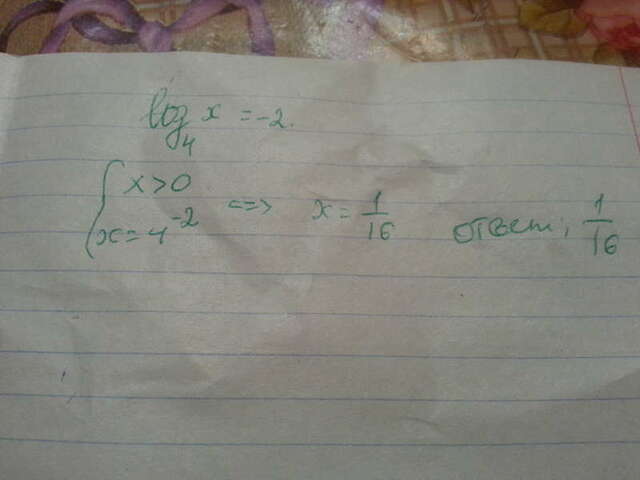 log₄ x = -2.
{ x > 0
x = 4⁻² <=> x = 1/16 ответ: 1/16